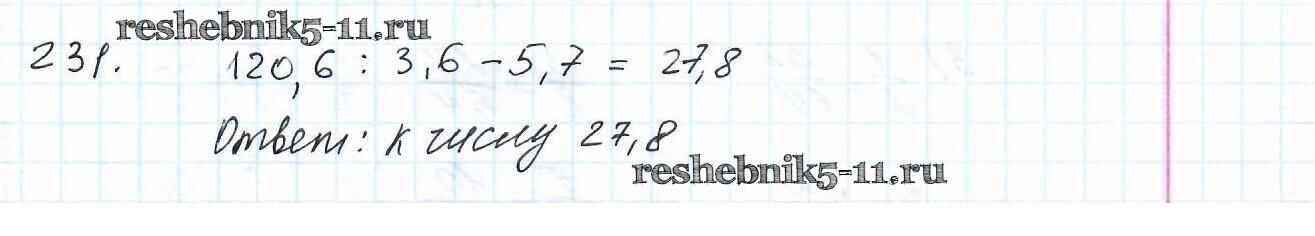 reshebnik5-11.ru
231. 120,6 : 3,6 - 5,7 = 27,8
Ответ: к числу 27,8
reshebnik5-11.ru